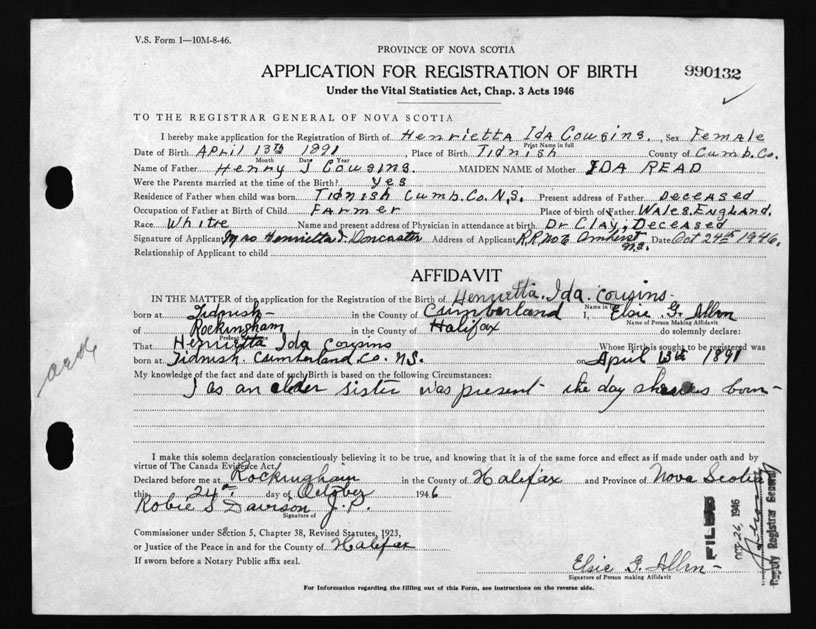 V.S. Form 1—10M-8-46.
PROVINCE OF NOVA SCOTIA
APPLICATION FOR REGISTRATION OF BIRTH
990132
Under the Vital Statistics Act, Chap. 3 Acts 1946
TO THE REGISTRAR GENERAL OF NOVA SCOTIA
I hereby make application for the Registration of Birth of Henrietta Ida Cousins. Sex Female
Print Name in full
Date of Birth April 13th 1891 Place of Birth Tidnish County of Cumb. Co.
Month Date Year
Name of Father Henry J Cousins. MAIDEN NAME of Mother IDA READ
Were the Parents married at the time of the Birth? yes
Residence of Father when child was born Tidnish Cumb. Co. N.S. Present address of Father Deceased
Occupation of Father at Birth of Child Farmer Place of birth of Father Wales. England.
Race White Name and present address of Physician in attendance at birth Dr Clay, Deceased
Signature of Applicant Mrs Henrietta I. Doncaster Address of Applicant R.R. No 6 Amherst N.S. Date Oct 24th 1946.
Relationship of Applicant to child
AFFIDAVIT
IN THE MATTER of the application for the Registration of the Birth of Henrietta. Ida. Cousins.
born at Tidnish in the County of Cumberland I, Elsie G. Allen
Name of Person Making Affidavit
of Rockingham in the County of Halifax do solemnly declare:
That Henrietta Ida Cousins Whose Birth is sought to be registered was
born at Tidnish. Cumberland Co. N.S. on April 13th 1891
My knowledge of the fact and date of such Birth is based on the following Circumstances:
I as an elder sister was present the day she was born
ard
I make this solemn declaration conscientiously believing it to be true, and knowing that it is of the same force and effect as if made under oath and by
virtue of The Canada Evidence Act.
Declared before me at Rockingham in the County of Halifax and Province of Nova Scotia
this 24th day of October 1946
Robie S Davison J.P.
Signature of
Commissioner under Section 5, Chapter 38, Revised Statutes, 1923,
or Justice of the Peace in and for the County of Halifax
If sworn before a Notary Public affix seal.
Elsie G. Allen
Signature of Person making Affidavit
FILED
26 1946
Deputy Registrar General
For Information regarding the filling out of this Form, see instructions on the reverse side.